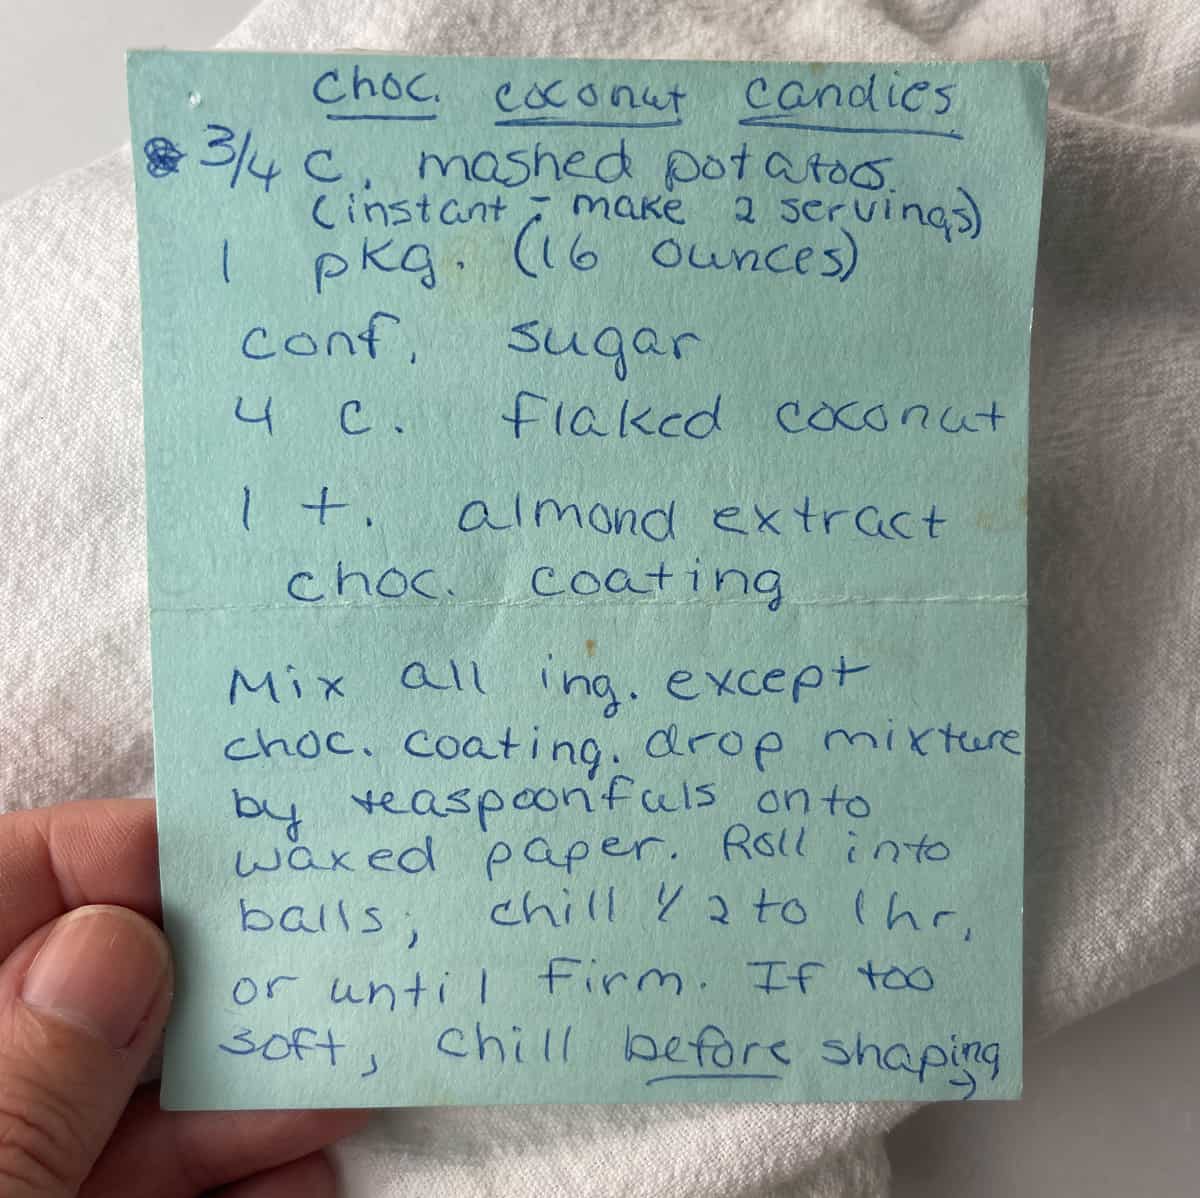 choc. coconut candies
3/4 c. mashed potatoes.
(instant - make 2 servings)
1 pkg. (16 ounces)
conf. sugar
4 c. flaked coconut
1 t. almond extract
choc. coating
Mix all ing. except
choc. coating. drop mixture
by teaspoonfuls onto
waxed paper. Roll into
balls; chill 1/2 to 1 hr,
or until firm. If too
soft, chill before shaping
→